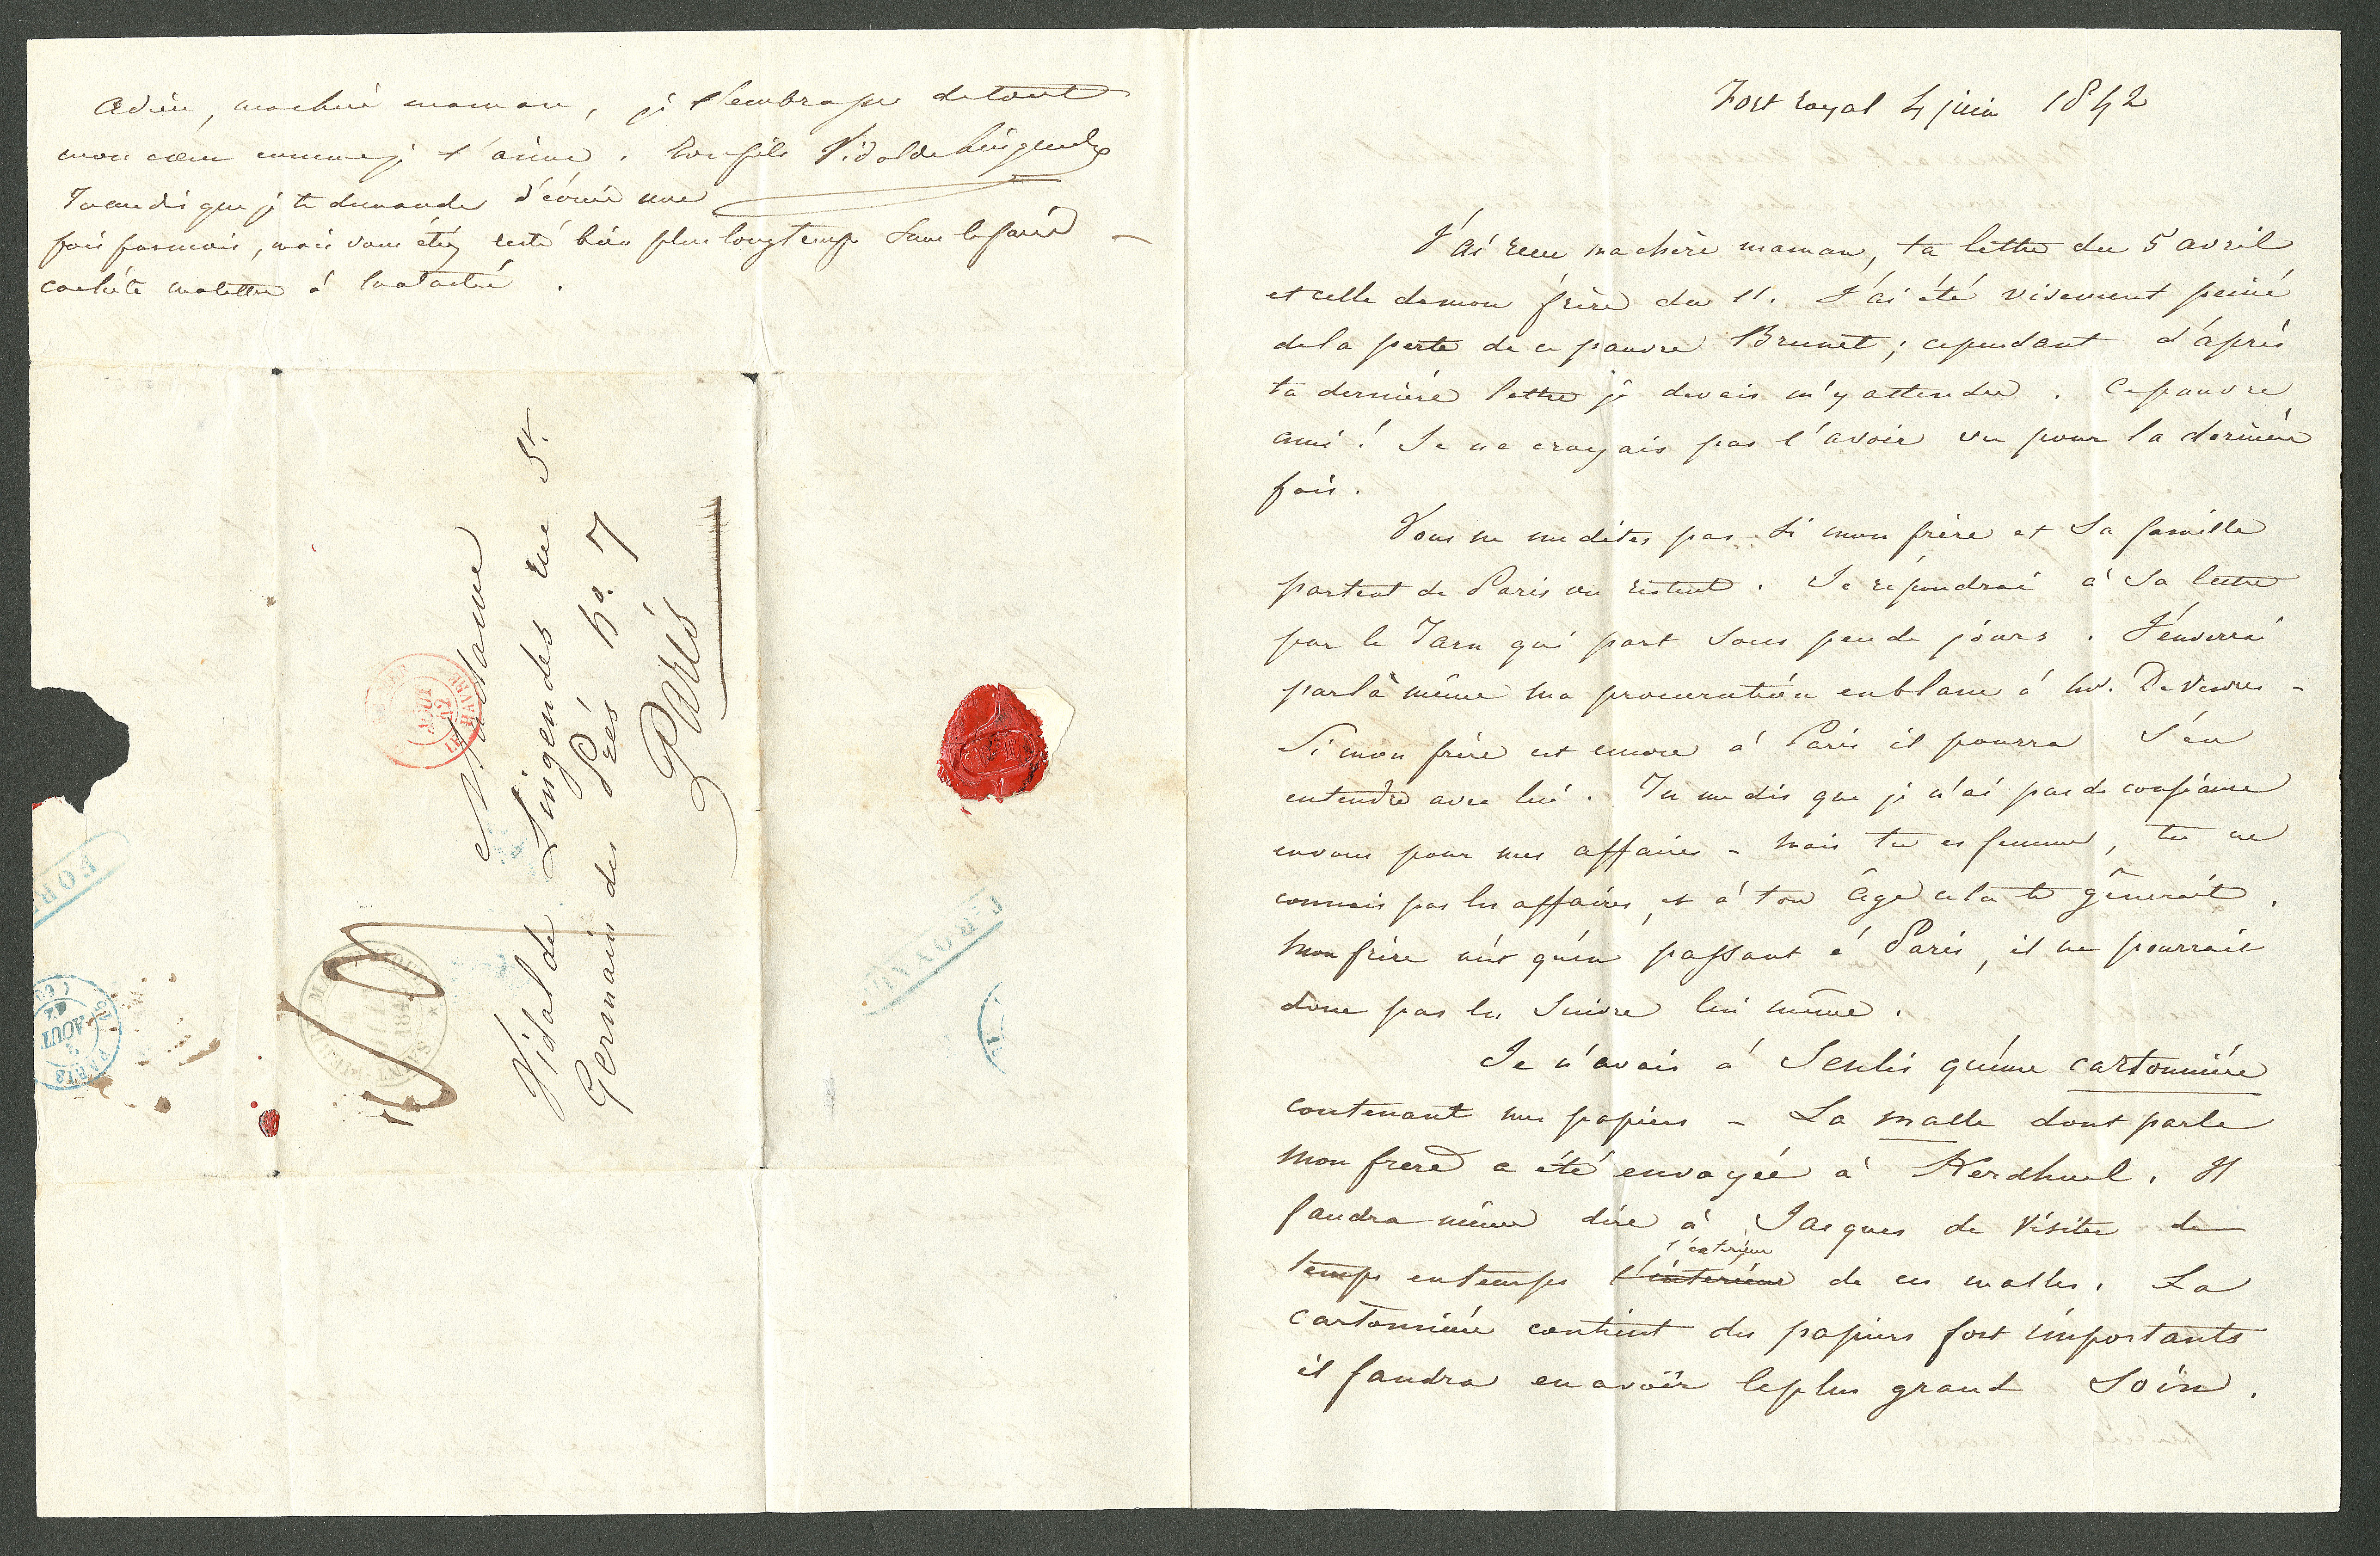 Adieu, ma chère maman, je t'embrasse de tout
mon cœur comme je t'aime. Ton fils Vidal de Lingendes
Tu me dis que je te demande d'écrire une
fois par mois, mais vous étiez resté bien plus longtemps sans le faire –
cachète ma lettre à
Madame
Vidal de Lingendes rue St.
Germain des Prés No. 7
Paris
Fort royal 4 juin 1842
J'ai reçu ma chère maman, ta lettre du 5 avril
et celle de mon frère du 11. J'ai été vivement peiné
de la perte de ce pauvre Brunet; cependant d'après
ta dernière lettre je devais m'y attendre. Ce pauvre
ami! Je ne croyais pas l'avoir vu pour la dernière
fois.
Vous ne me dites pas si mon frère et sa famille
partent de Paris ou restent. Je répondrai à sa lettre
par le Tarn qui part sous peu de jours. J'enverrai
par là même ma procuration en blanc à Mr. De
Si mon frère est encore à Paris il pourra s'en
entendre avec lui. Tu me dis que je n'ai pas de confiance
en vous pour mes affaires – mais tu es femme, tu ne
connais pas les affaires, et à ton âge cela te gênerait.
Mon frère n'est qu'en passant à Paris, il ne pourrait
donc pas les suivre lui même.
Je n'avais à Senlis qu'une cartonnière
contenant mes papiers – La malle dont parle
mon frere a été envoyée à Kerdhuel. Il
faudra même dire à Jacques de visiter de
l'extérieur
temps en temps l'intérieur de ces malles. La
cartonnière contient des papiers fort importants
il faudra en avoir le plus grand soin.